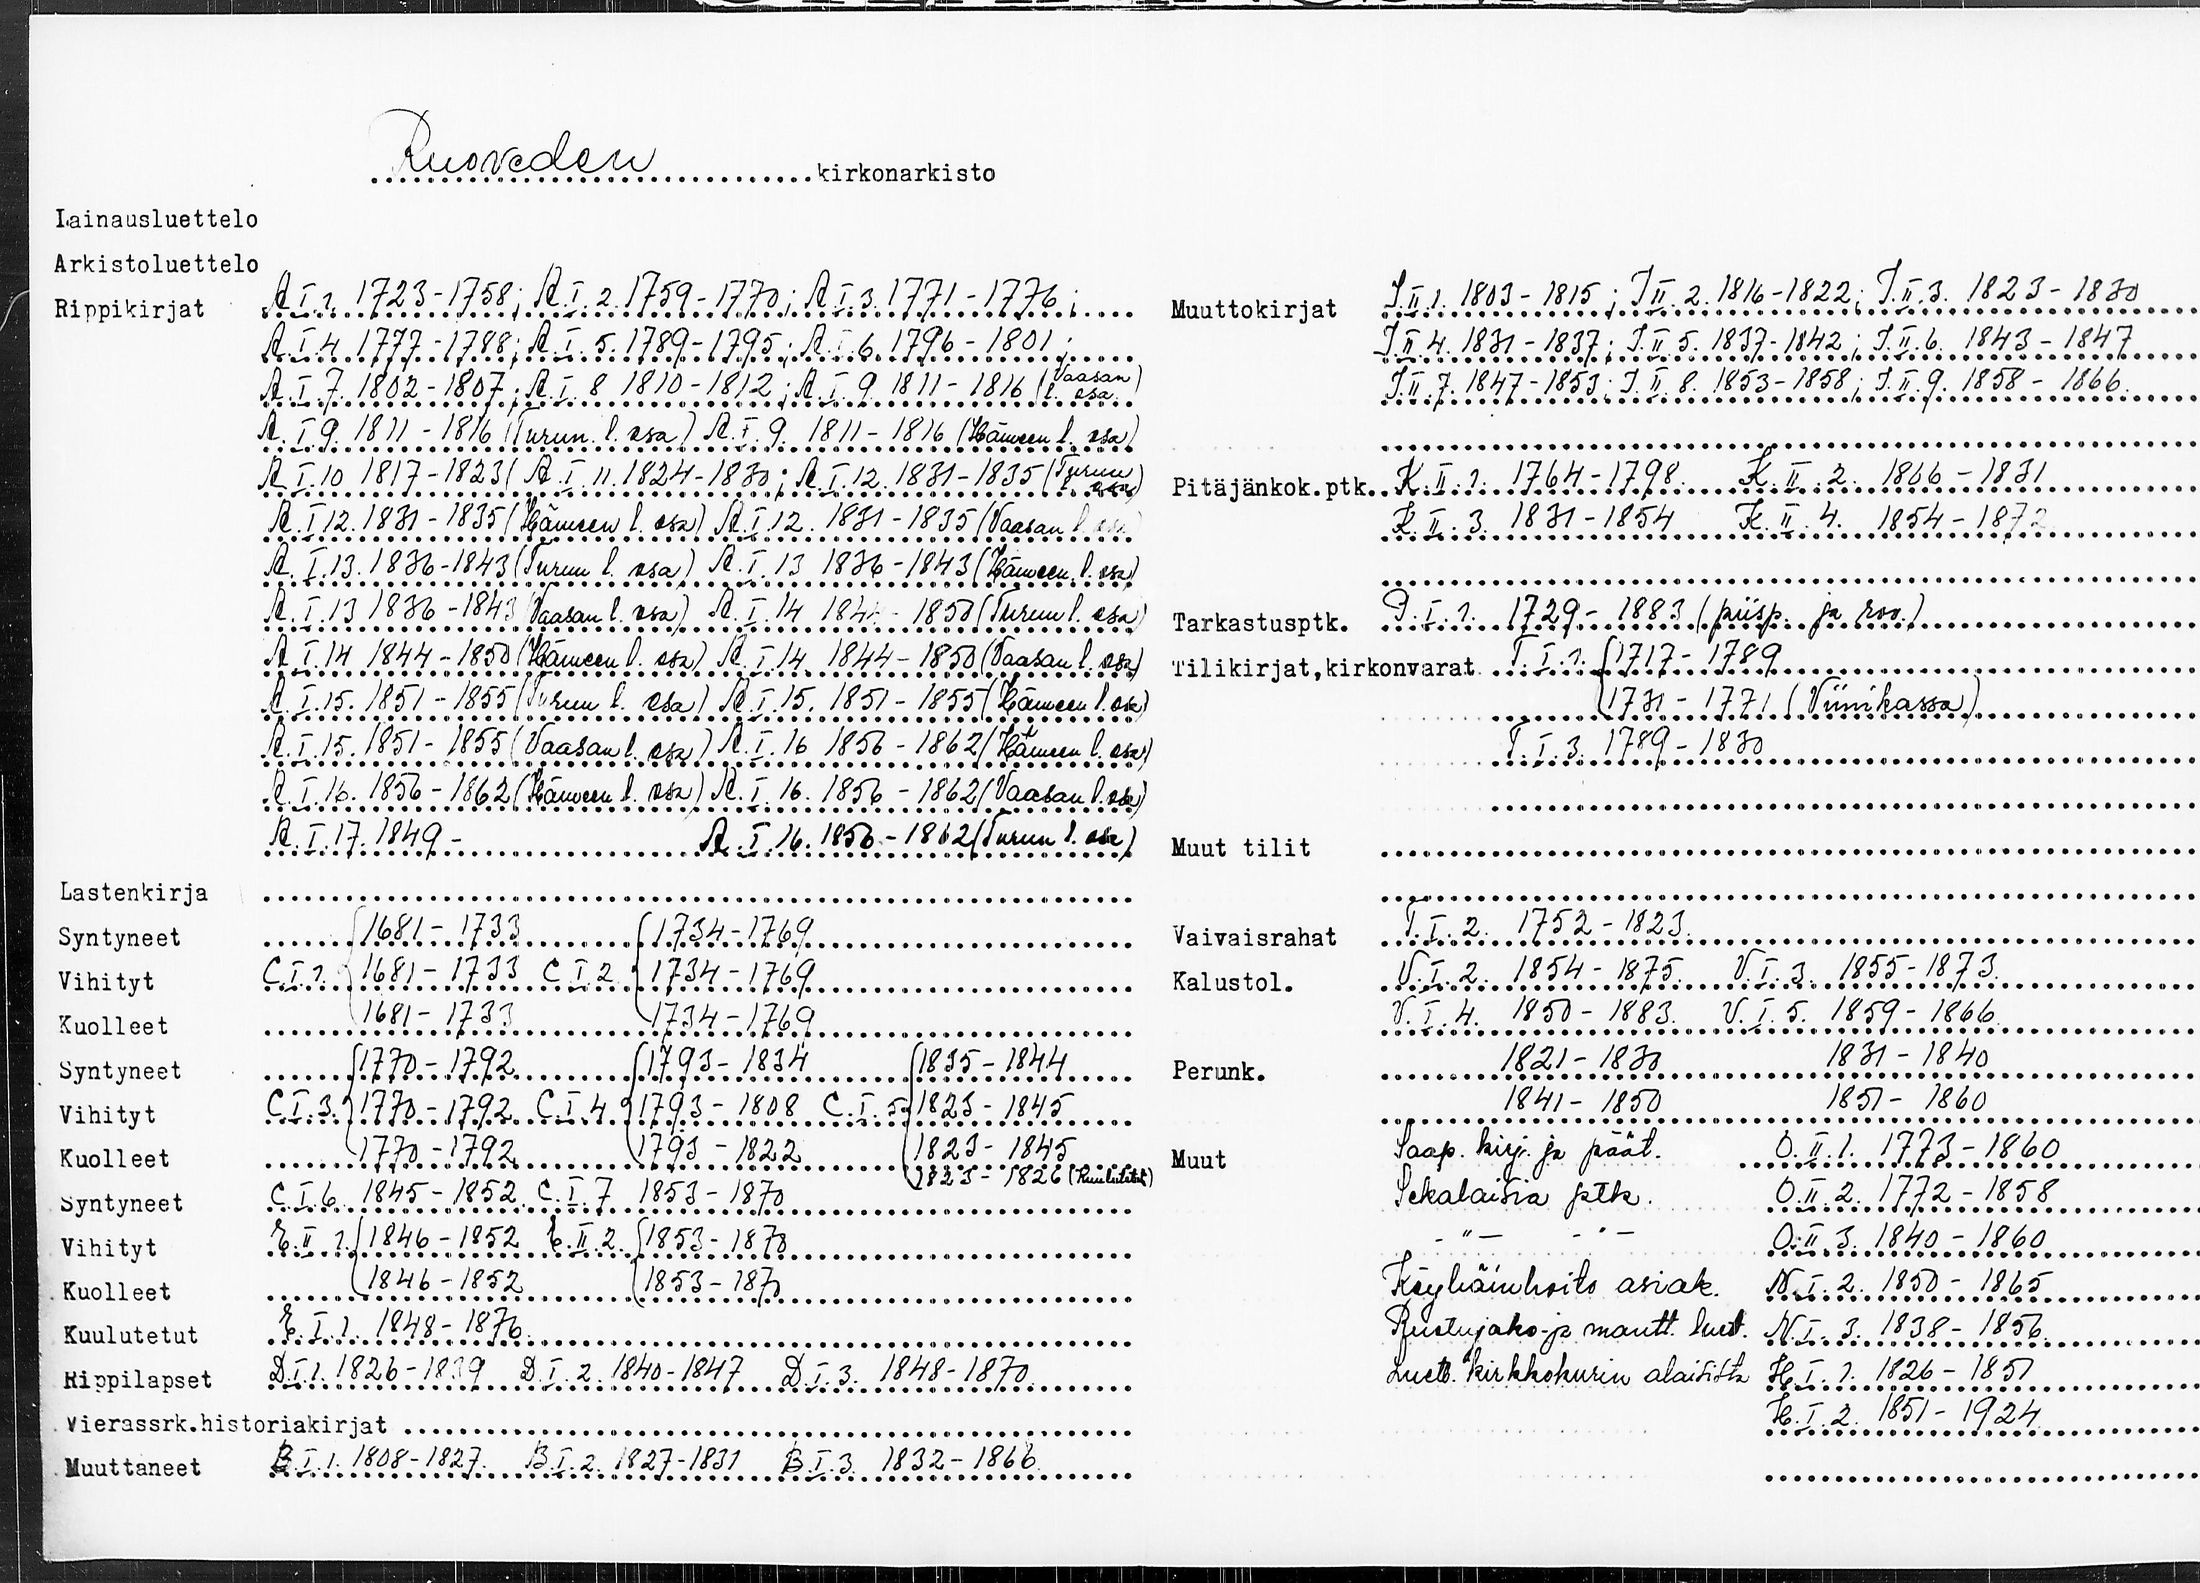 Ruoveden kirkonarkisto
Lainausluettelo
Arkistoluettelo
Rippikirjat A.I.1. 1723-1758; A.I.2. 1759-1770; A.I.3. 1771-1776;
A.I.4. 1777-1788; A.I.5. 1789-1795; A.I.6. 1796-1801;
A.I.7. 1802-1807; A.I.8 1810-1812; A.I.9. 1811-1816 (Vaasan l. osa)
A.I.9. 1811-1816 (Turun l. osa) A.I.9. 1811-1816 (Hämeen l. osa)
A.I.10 1817-1823( A.I.11. 1824-1830; A.I.12. 1831-1835 (Turun osa)
A.I.12. 1831-1835 (Hämeen l. osa) A.I.12. 1831-1835 (Vaasan l. osa
A.I.13. 1836-1843 (Turun l. osa) A.I.13 1836-1843 (Hämeen l. osa)
A.I.13 1836-1843 (Vaasan l. osa) A.I.14 1844-1850 (Turun l. osa)
A.I.14 1844-1850 (Hämeen l. osa) A.I.14 1844-1850 (Vaasan l. osa)
A.I.15. 1851-1855 (Turun l. osa) A.I.15. 1851-1855 (Hämeen l. osa)
A.I.15. 1851-1855 (Vaasan l. osa) A.I.16 1856-1862 (Hämeen l. osa)
A.I.16. 1856-1862 (Hämeen l. osa) A.I.16. 1856-1862 (Vaasan l. osa)
A.I.17. 1849- A.I.16. 1856-1862 (Turun l. osa)
Lastenkirja
Syntyneet 1681-1733 1734-1769
Vihityt C.I.1. 1681-1733 C.I.2. 1734-1769
Kuolleet 1681-1733 1734-1769
Syntyneet 1770-1792 1793-1834 1835-1844
Vihityt C.I.3. 1770-1792 C.I.4. 1793-1808 C.I.5. 1823-1845
Kuolleet 1770-1792 1793-1822 1823-1845
1823-1826 (Kuulutetut)
Syntyneet C.I.6. 1845-1852 C.I.7 1853-1870
Vihityt E.II.1. 1846-1852 E.II.2. 1853-1870
Kuolleet 1846-1852 1853-1870
Kuulutetut E.I.1. 1848-1876
Rippilapset D.I.1. 1826-1839 D.I.2. 1840-1847 D.I.3. 1848-1870
Vierassrk.historiakirjat
Muuttaneet B.I.1. 1808-1827. B.I.2. 1827-1831 B.I.3. 1832-1866
Muuttokirjat I.II.1. 1803-1815; I.II.2. 1816-1822; I.II.3. 1823-1830
I.II.4. 1831-1837; I.II.5. 1837-1842; I.II.6. 1843-1847
I.II.7. 1847-1853; I.II.8. 1853-1858; I.II.9. 1858-1866.
Pitäjänkok.ptk. K.II.1. 1764-1798. K.II.2. 1806-1831
K.II.3. 1831-1854 K.II.4. 1854-1872
Tarkastusptk. P.I.1. 1729-1883 (piisp. ja rov.)
Tilikirjat,kirkonvarat T.I.1. 1717-1789
1731-1771 (Viinikassa)
T.I.3. 1789-1830
Muut tilit
Vaivaisrahat T.I.2. 1752-1823.
Kalustol. V.I.2. 1854-1875. V.I.3. 1855-1873.
V.I.4. 1850-1883. V.I.5. 1859-1866.
Perunk. 1821-1830 1831-1840
1841-1850 1851-1860
Muut Saap. kirj. ja päät. O.II.1. 1773-1860
Sekalaisia ptk. O.II.2. 1772-1858
-"- -"- O.II.3. 1840-1860
Köyhäinhoito asiak. N.I.2. 1850-1865
Ruotujako- ja mantt. luet. N.I.3. 1838-1856
Luett. kirkkokurin alaisista H.I.1. 1826-1851
H.I.2. 1851-1924